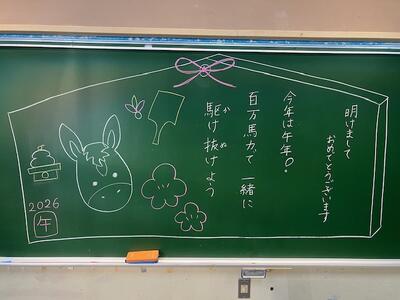 明けまして
おめでとうございます
今年は午年。
百万馬力で一緒に
駆け抜けよう
か ぬ
2026
午